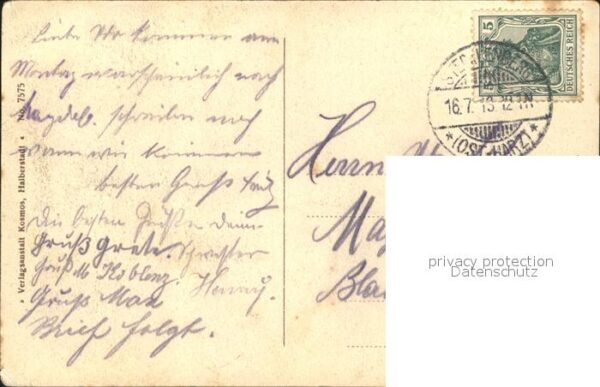 Liebe Wir kommen am
Montag warscheinlich nach
Magdeb. schreiben noch
wann wir kommen
besten Gruß Fritz
Die besten Grüße
Gruß Grete. Schwester
Gruß M Koblenz. Henny.
Gruß Max
Brief folgt.
Verlagsanstalt Kosmos, Halberstadt • No. 7575
5
DEUTSCHES REICH
16.7.13.12-1N
*(OSTHARZ)*
Herrn
Ma
Bla
privacy protection
Datenschutz